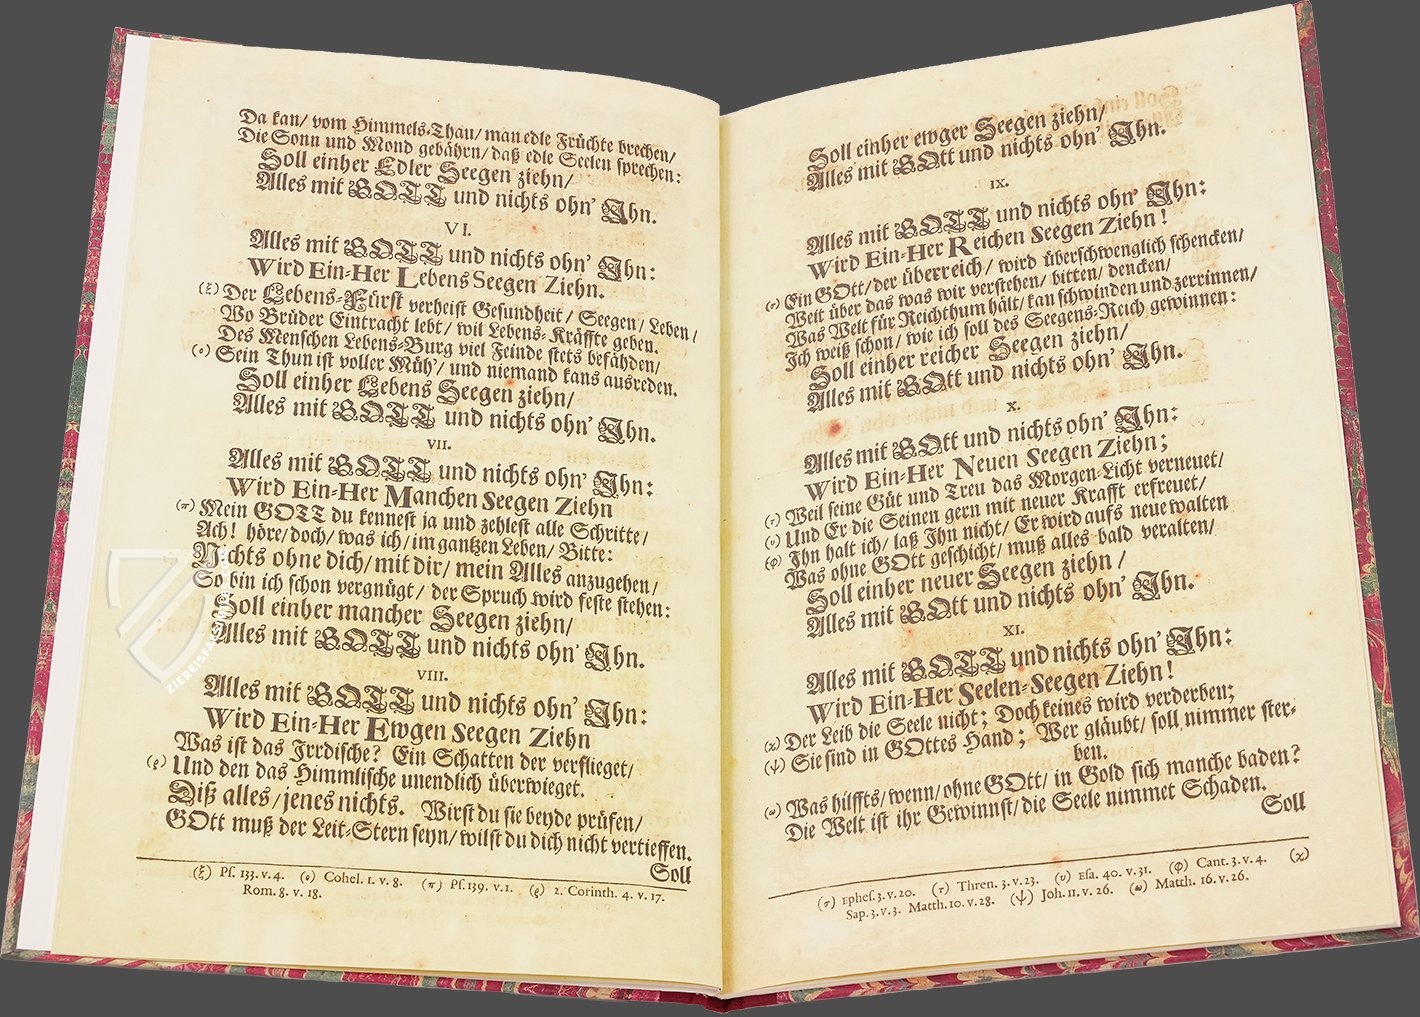 Da kan/ vom Himmels-Thau/ man edle Früchte brechen/
Die Sonn und Mond gebährn/ daß edle Seelen sprechen:
Soll einher Edler Seegen ziehn/
Alles mit GOTT und nichts ohn' Ihn.
VI.
Alles mit GOTT und nichts ohn' Ihn:
Wird Ein-Her Lebens Seegen Ziehn.
(ξ) Der Lebens-Fürst verheist Gesundheit/ Seegen/ Leben/
Wo Brüder Eintracht lebt/ wil Lebens-Kräffte geben.
Des Menschen Lebens-Burg viel Feinde stets befähden/
(ο) Sein Thun ist voller Müh'/ und niemand kans ausreden.
Soll einher Lebens Seegen ziehn/
Alles mit GOTT und nichts ohn' Ihn.
VII.
Alles mit GOTT und nichts ohn' Ihn:
Wird Ein-Her Manchen Seegen Ziehn
(π) Mein GOTT du kennest ja und zehlest alle Schritte/
Ach! höre/ doch/ was ich/ im gantzen Leben/ Bitte:
Nichts ohne dich/ mit dir/ mein Alles anzugehen/
So bin ich schon vergnügt/ der Spruch wird feste stehen:
Soll einher mancher Seegen ziehn/
Alles mit GOTT und nichts ohn' Ihn.
VIII.
Alles mit GOTT und nichts ohn' Ihn:
Wird Ein-Her Ewgen Seegen Ziehn
Was ist das Irrdische? Ein Schatten der verflieget/
(ρ) Und den das Himmlische unendlich überwieget.
Diß alles/ jenes nichts. Wirst du sie beyde prüfen/
GOtt muß der Leit-Stern seyn/ wilst du dich nicht vertieffen.
Soll
(ξ) Ps. 133. v. 4. (ο) Cohel. 1. v. 8. (π) Ps. 139. v. 1. (ρ) 2. Corinth. 4. v. 17.
Rom. 8. v. 18.
Soll einher ewger Seegen ziehn/
Alles mit GOtt und nichts ohn' Ihn.
IX.
Alles mit GOTT und nichts ohn' Ihn:
Wird Ein-Her Reichen Seegen Ziehn!
(σ) Ein GOtt/ der überreich/ wird überschwenglich schencken/
Weit über das was wir verstehen/ bitten/ dencken/
Was Welt für Reichthum hält/ kan schwinden und zerrinnen/
Ich weiß schon/ wie ich soll des Seegens-Reich gewinnen:
Soll einher reicher Seegen ziehn/
Alles mit GOtt und nichts ohn' Ihn.
X.
Alles mit GOtt und nichts ohn' Ihn:
Wird Ein-Her Neuen Seegen Ziehn;
(τ) Weil seine Güt und Treu das Morgen-Licht verneuet/
(υ) Und Er die Seinen gern mit neuer Krafft erfreuet/
(φ) Ihn halt ich/ laß Ihn nicht/ Er wird aufs neue walten
Was ohne GOtt geschicht/ muß alles bald veralten/
Soll einher neuer Seegen ziehn/
Alles mit GOtt und nichts ohn' Ihn.
XI.
Alles mit GOTT und nichts ohn' Ihn:
Wird Ein-Her Seelen-Seegen Ziehn!
(χ) Der Leib die Seele nicht; Doch keines wird verderben;
(ψ) Sie sind in GOttes Hand; Wer gläubt/ soll nimmer ster-
ben.
(ω) Was hilffts/ wenn/ ohne GOtt/ in Gold sich manche baden?
Die Welt ist ihr Gewinnst/ die Seele nimmet Schaden.
Soll
(σ) Ephes. 3. v. 20. (τ) Thren. 3. v. 23. (υ) Esa. 40. v. 31. (φ) Cant. 3. v. 4. (χ)
Sap. 3. v. 3. Matth. 10. v. 28. (ψ) Joh. 11. v. 26. (ω) Matth. 16. v. 26.